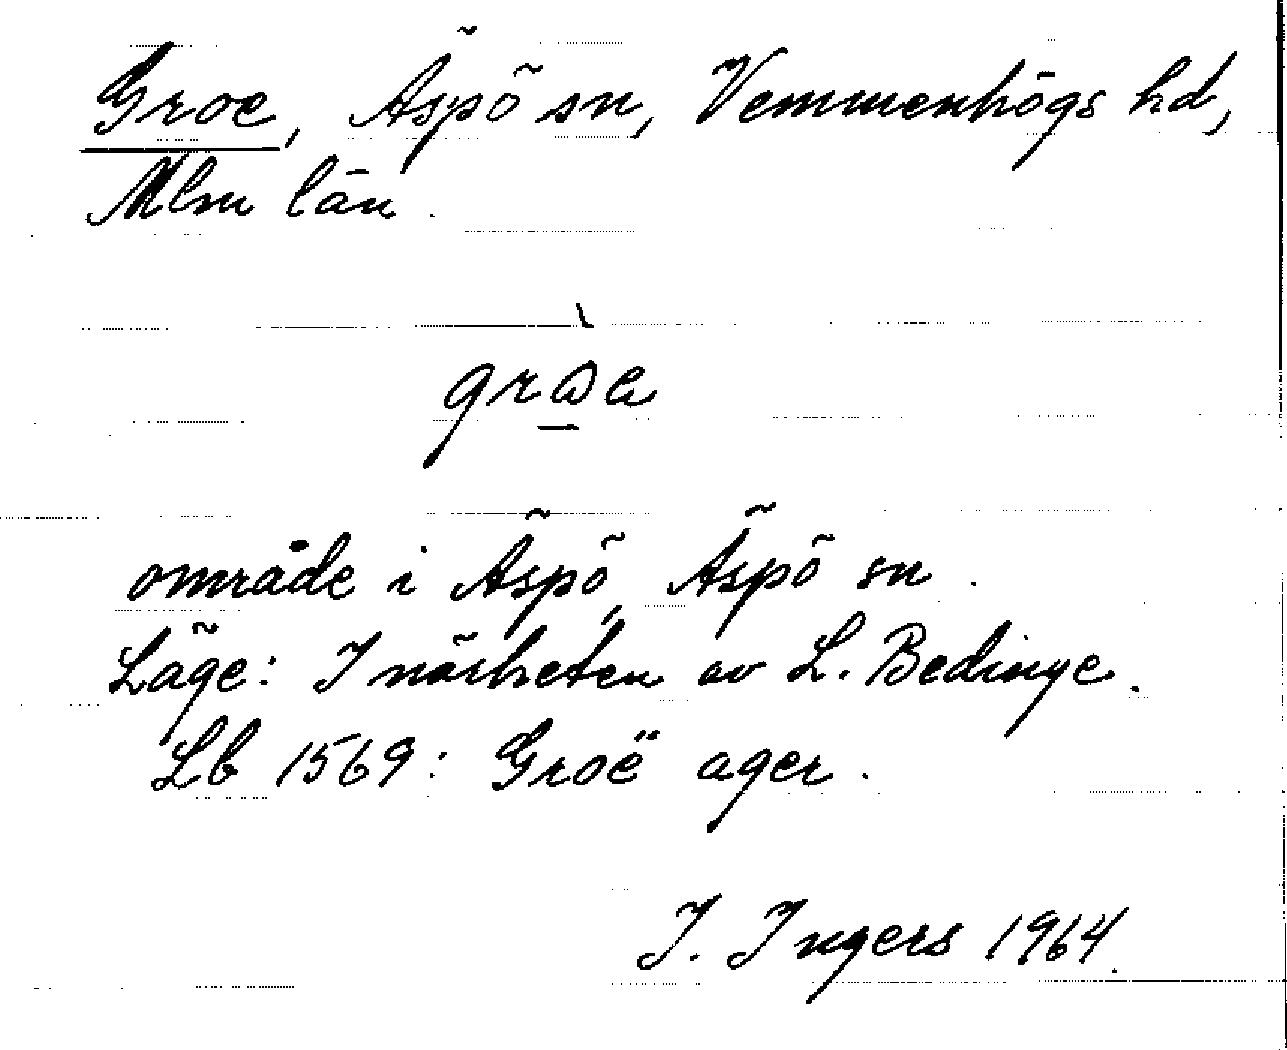 Groe, Äspö sn, Vemmenhögs hd,
Mlm län.
område i Äspö, Äspö sn.
Läge: I närheten av L. Bedinge.
Lb 1569: Groë ager.
I. Ingers 1964.